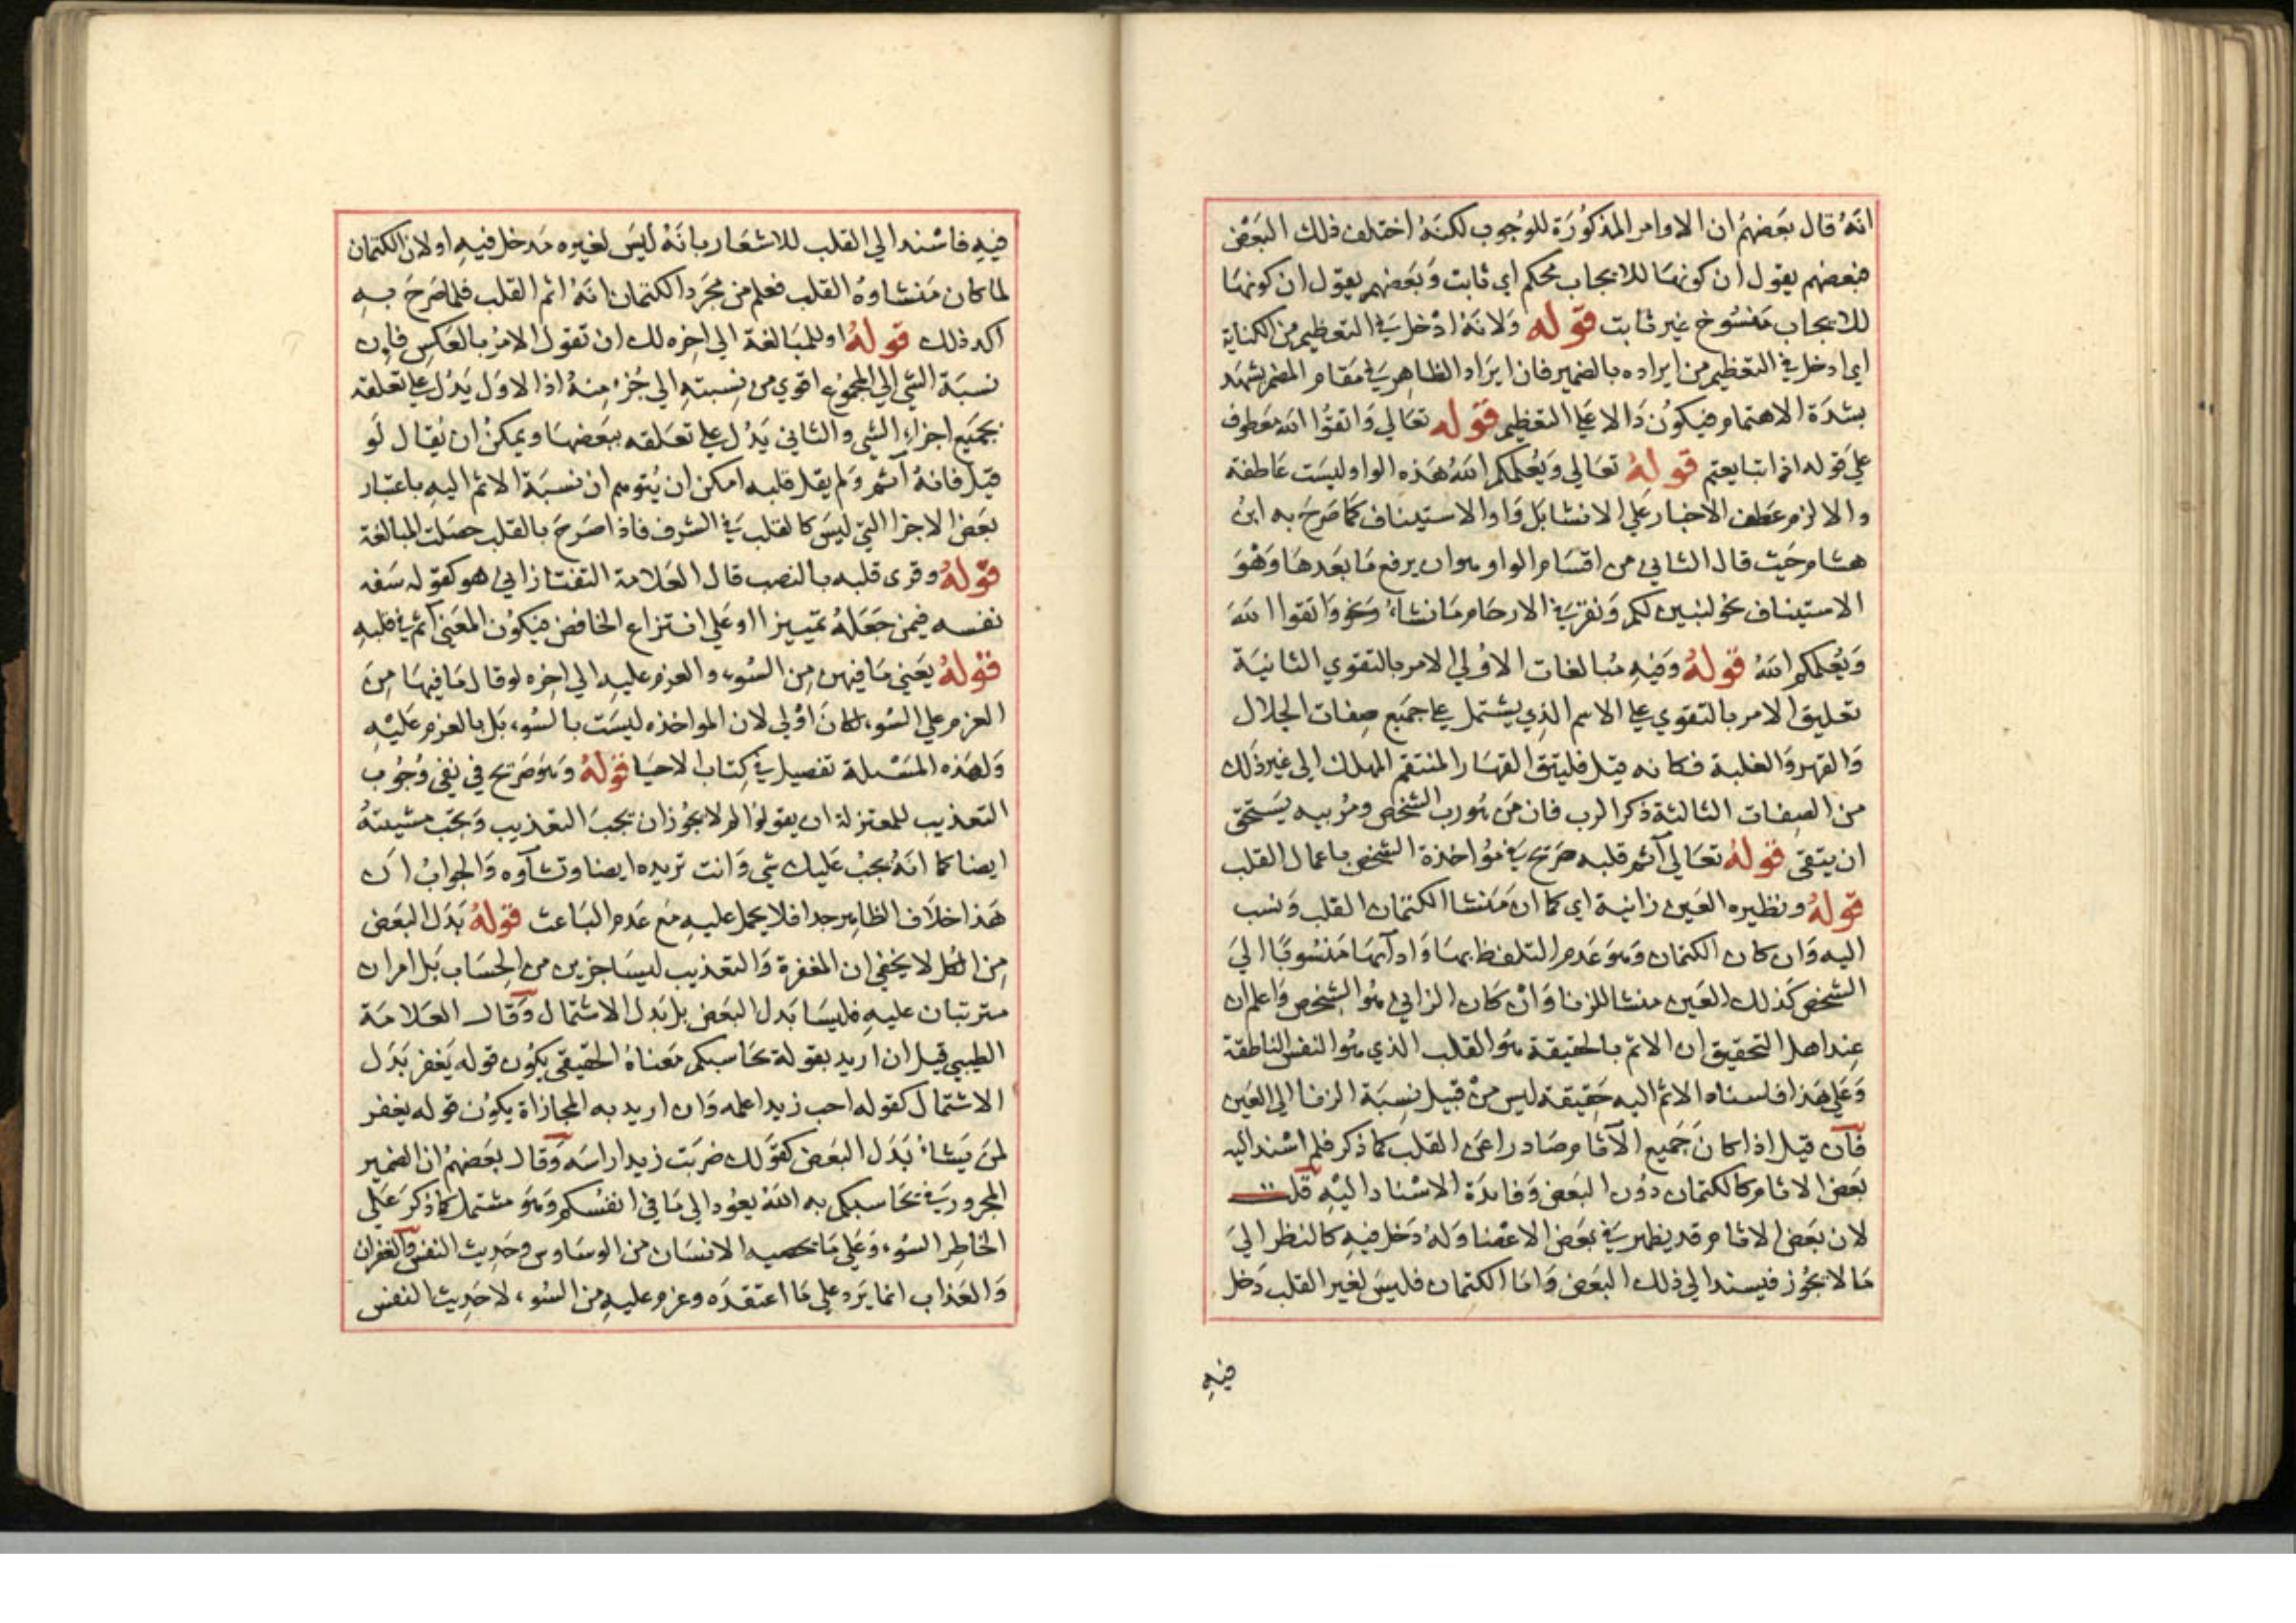 انه قال بعضهم ان الاوامر المذكورة للوجوب لكنه اختلف ذلك البعض
فبعضهم يقول ان كونها للايجاب محكم اي ثابت وبعضهم يقول ان كونها
للايجاب منسوخ غير ثابت قوله ولانه ادخل في التعظيم من الكناية
اي ادخل في التعظيم من ايراده بالضمير فان ايراد الظاهر في مقام المضمر يشهد
بشدة الاهتمام فيكون دالا على التعظيم قوله تعالي واتقوا الله معطوف
علي قوله اذا تبايعتم قوله تعالي ويعلمكم الله هذه الواو ليست عاطفة
والا لزم عطف الاخبار علي الانشا بل واو الاستيناف كما صرح به ابن
هشام حيث قال الثاني من اقسام الواو وهو ان يرفع ما بعدها وهو
الاستيناف نحو لنبين لكم ونقر في الارحام ما نشاء ونحو واتقوا الله
ويعلمكم الله قوله وفيه مبالغات الاولي الامر بالتقوي الثانية
تعليق الامر بالتقوي على الاسم الذي يشتمل على جميع صفات الجلال
والقهر والغلبة فكانه قيل فليتق القهار المنتقم المهلك الي غير ذلك
من الصفات الثالثة ذكر الرب فان من هو رب الشخص ومربيه يستحق
ان يتقي قوله تعالي آثم قلبه صريح في مؤاخذة الشخص باعمال القلب
قوله ونظيره العين زانية اي كما ان منشا الكتمان القلب ونسب
اليه وان كان الكتمان وهو عدم التلفظ بها واداها منسوبا الي
الشخص كذلك العين منشا للزنا وان كان الزاني هو الشخص واعلم ان
عند اهل التحقيق ان الاثم بالحقيقة هو القلب الذي هو النفس الناطقة
وعلي هذا فاسناد الاثم اليه حقيقة ليس من قبيل نسبة الزنا الي العين
فان قيل اذا كان جميع الآثام صادرا عن القلب كما ذكر فلم اسند اليه
بعض الاثام كالكتمان دون البعض وفايدة الاسناد اليه قلت
لان بعض الاثام قد يظهر في بعض الاعضا وله دخل فيه كالنظر الي
ما لا يجوز فيسند الي ذلك البعض واما الكتمان فليس لغير القلب دخل
فيه
فيه فاسند الي القلب للاشعار بانه ليس لغيره مدخل فيه اولان الكتمان
لما كان منشاوه القلب فعلم من مجرد الكتمان انه اثم القلب فلما صرح به
اكد ذلك قوله او للمبالغة الي اخره لك ان تقول الامر بالعكس فان
نسبة الشي الي المجموع اقوي من نسبته الي جزء منه اذ الاول يدل على تعلقه
بجميع اجزاء الشي والثاني يدل على تعلقه ببعضها ويمكن ان يقال لو
قيل فانه آثم ولم يقل قلبه امكن ان يتوهم ان نسبة الاثم اليه باعتبار
بعض الاجزا التي ليس كالقلب في الشرف فاذا صرح بالقلب حصلت المبالغة
قوله وقرى قلبه بالنصب قال العلامة التفتازاني هو كقوله سفه
نفسه فيمن جعله تمييزا او على انتزاع الخافض فيكون المعنى آثم في قلبه
قوله يعني ما فيهن من السوء والعزم عليه الي اخره لو قال ما فيها من
العزم علي السوء لكان اولي لان المواخذه ليست بالسوء بل بالعزم عليه
ولهذه المسئلة تفصيل في كتاب الاحيا قوله وهو صريح في نفي وجوب
التعذيب للمعتزلة ان يقولوا لم لا يجوز ان تجب التعذيب وتجب مشيئته
ايضا كما انه يجب عليك شي وانت تريده ايضا وتشاوه والجواب ان
هذا خلاف الظاهر جدا فلا يحمل عليه مع عدم الباعث قوله بدل البعض
من الكل لا يخفي ان المغفرة والتعذيب ليسا جزين من الحساب بل امران
مترتبان عليه فليسا بدل البعض بل بدل الاشتمال وقال العلامة
الطيبي قيل ان اريد بقوله يحاسبكم معناه الحقيقي يكون قوله يغفر بدل
الاشتمال كقوله احب زيدا علمه وان اريد به المجازاة يكون قوله يغفر
لمن يشاء بدل البعض كقولك ضربت زيدا راسه وقال بعضهم ان الضمير
المجرور في يحاسبكم به الله يعود الي ما في انفسكم وهو مشتمل كما ذكر علي
الخاطر السوء وعلي ما يخفيه الانسان من الوساوس وحديث النفس والغفران
والعذاب انما يرد علي ما اعتقده وعزم عليه من السوء لا حديث النفس